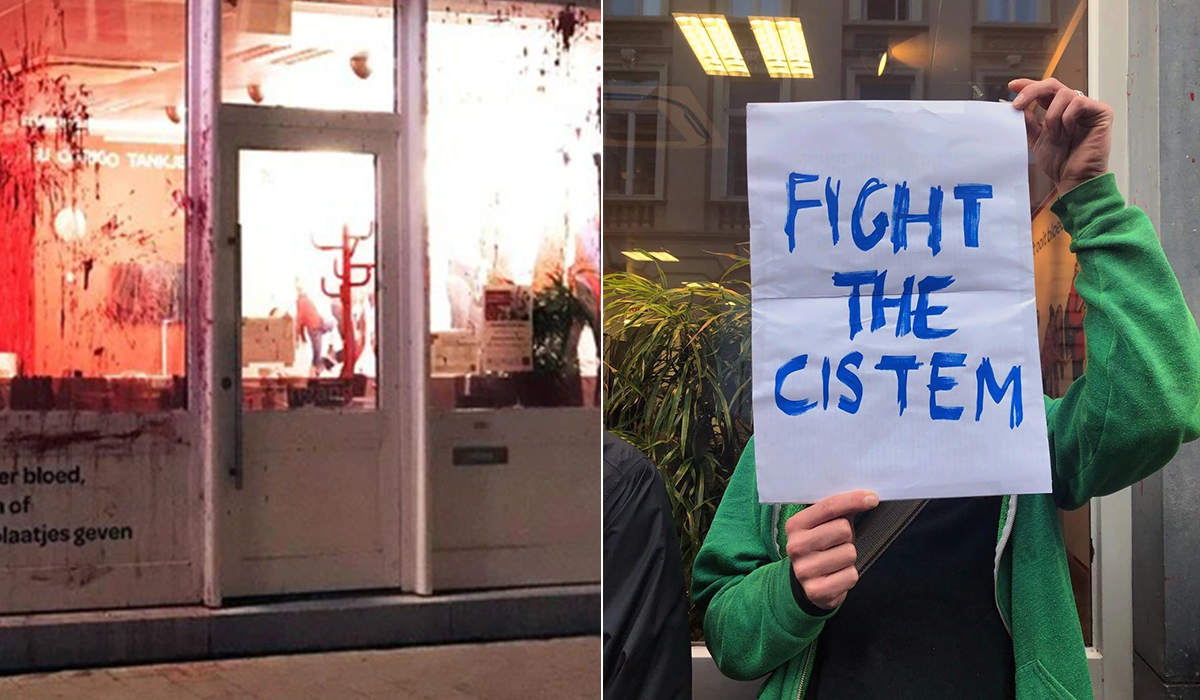 TANKJE
er bloed,
of
laatjes geven
FIGHT
THE
CISTEM